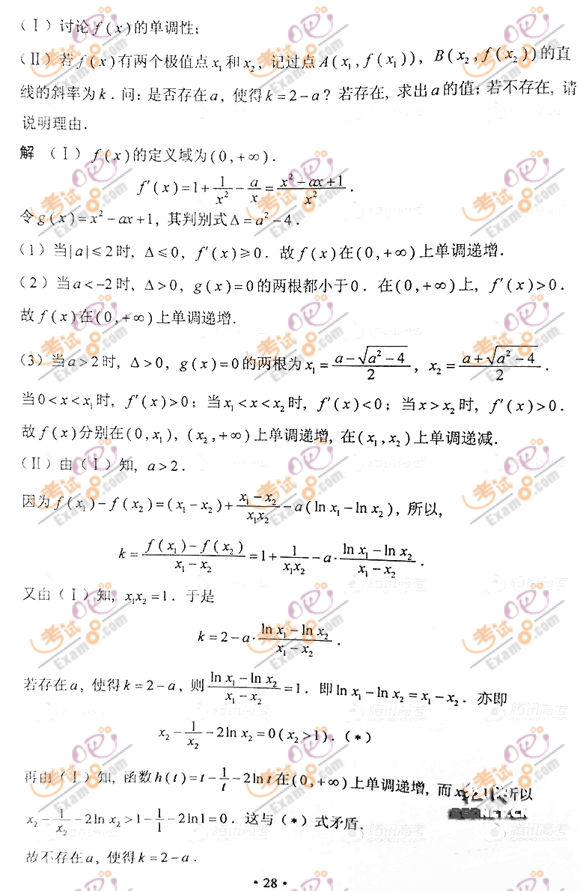 (Ⅰ) 讨论 f(x) 的单调性;
(Ⅱ) 若 f(x) 有两个极值点 x₁ 和 x₂, 记过点 A(x₁, f(x₁)), B(x₂, f(x₂)) 的直
线的斜率为 k. 问: 是否存在 a, 使得 k=2-a? 若存在, 求出 a 的值; 若不存在, 请
说明理由.
解 (Ⅰ) f(x) 的定义域为 (0,+∞).
f′(x)=1+1/x²-a/x=(x²-ax+1)/x².
令 g(x)=x²-ax+1, 其判别式 Δ=a²-4.
(1) 当 |a|≤2 时, Δ≤0, f′(x)≥0. 故 f(x) 在 (0,+∞) 上单调递增.
(2) 当 a<-2 时, Δ>0, g(x)=0 的两根都小于 0. 在 (0,+∞) 上, f′(x)>0.
故 f(x) 在 (0,+∞) 上单调递增.
(3) 当 a>2 时, Δ>0, g(x)=0 的两根为 x₁=(a-√(a²-4))/2, x₂=(a+√(a²-4))/2.
当 0<x<x₁ 时, f′(x)>0; 当 x₁<x<x₂ 时, f′(x)<0; 当 x>x₂ 时, f′(x)>0.
故 f(x) 分别在 (0,x₁), (x₂,+∞) 上单调递增, 在 (x₁,x₂) 上单调递减.
(Ⅱ) 由 (Ⅰ) 知, a>2.
因为 f(x₁)-f(x₂)=(x₁-x₂)+(x₁-x₂)/(x₁x₂)-a(ln x₁-ln x₂), 所以,
k=(f(x₁)-f(x₂))/(x₁-x₂)=1+1/(x₁x₂)-a·(ln x₁-ln x₂)/(x₁-x₂).
又由 (Ⅰ) 知, x₁x₂=1. 于是
k=2-a·(ln x₁-ln x₂)/(x₁-x₂).
若存在 a, 使得 k=2-a, 则 (ln x₁-ln x₂)/(x₁-x₂)=1. 即 ln x₁-ln x₂=x₁-x₂. 亦即
x₂-1/x₂-2ln x₂=0(x₂>1). (*)
再由 (Ⅰ) 知, 函数 h(t)=t-1/t-2ln t 在 (0,+∞) 上单调递增, 而 所以
x₂-1/x₂-2ln x₂>1-1/1-2ln1=0. 这与 (*) 式矛盾.
故不存在 a, 使得 k=2-a.
·28·
考试吧
Exam8.com
腾讯高考